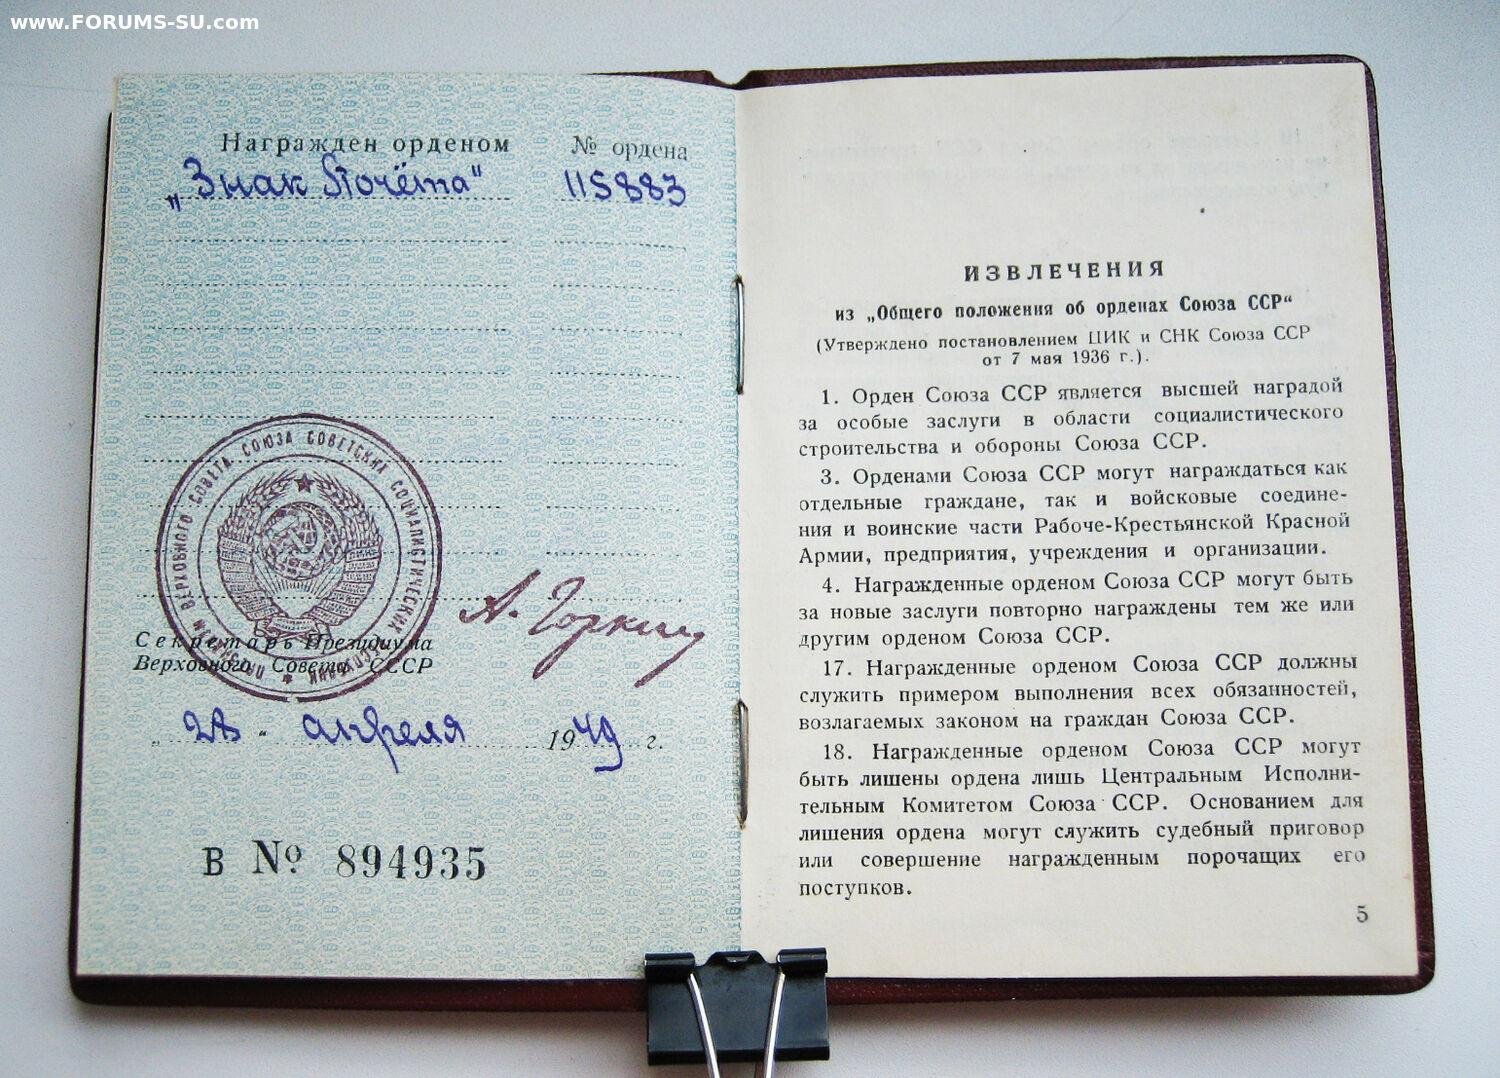 www.FORUMS-SU.com
Награжден орденом
№ ордена
„Знак Почёта"
115883
ПРЕЗИДИУМ ВЕРХОВНОГО СОВЕТА СОЮЗА СОВЕТСКИХ СОЦИАЛИСТИЧЕСКИХ РЕСПУБЛИК
А. Горкин
Секретарь Президиума
Верховного Совета СССР
„ “ апреля 1949 г.
В № 894935
ИЗВЛЕЧЕНИЯ
из „Общего положения об орденах Союза ССР“
(Утверждено постановлением ЦИК и СНК Союза ССР
от 7 мая 1936 г.).
1. Орден Союза ССР является высшей наградой
за особые заслуги в области социалистического
строительства и обороны Союза ССР.
3. Орденами Союза ССР могут награждаться как
отдельные граждане, так и войсковые соедине-
ния и воинские части Рабоче-Крестьянской Красной
Армии, предприятия, учреждения и организации.
4. Награжденные орденом Союза ССР могут быть
за новые заслуги повторно награждены тем же или
другим орденом Союза ССР.
17. Награжденные орденом Союза ССР должны
служить примером выполнения всех обязанностей,
возлагаемых законом на граждан Союза ССР.
18. Награжденные орденом Союза ССР могут
быть лишены ордена лишь Центральным Исполни-
тельным Комитетом Союза ССР. Основанием для
лишения ордена могут служить судебный приговор
или совершение награжденным порочащих его
поступков.
5